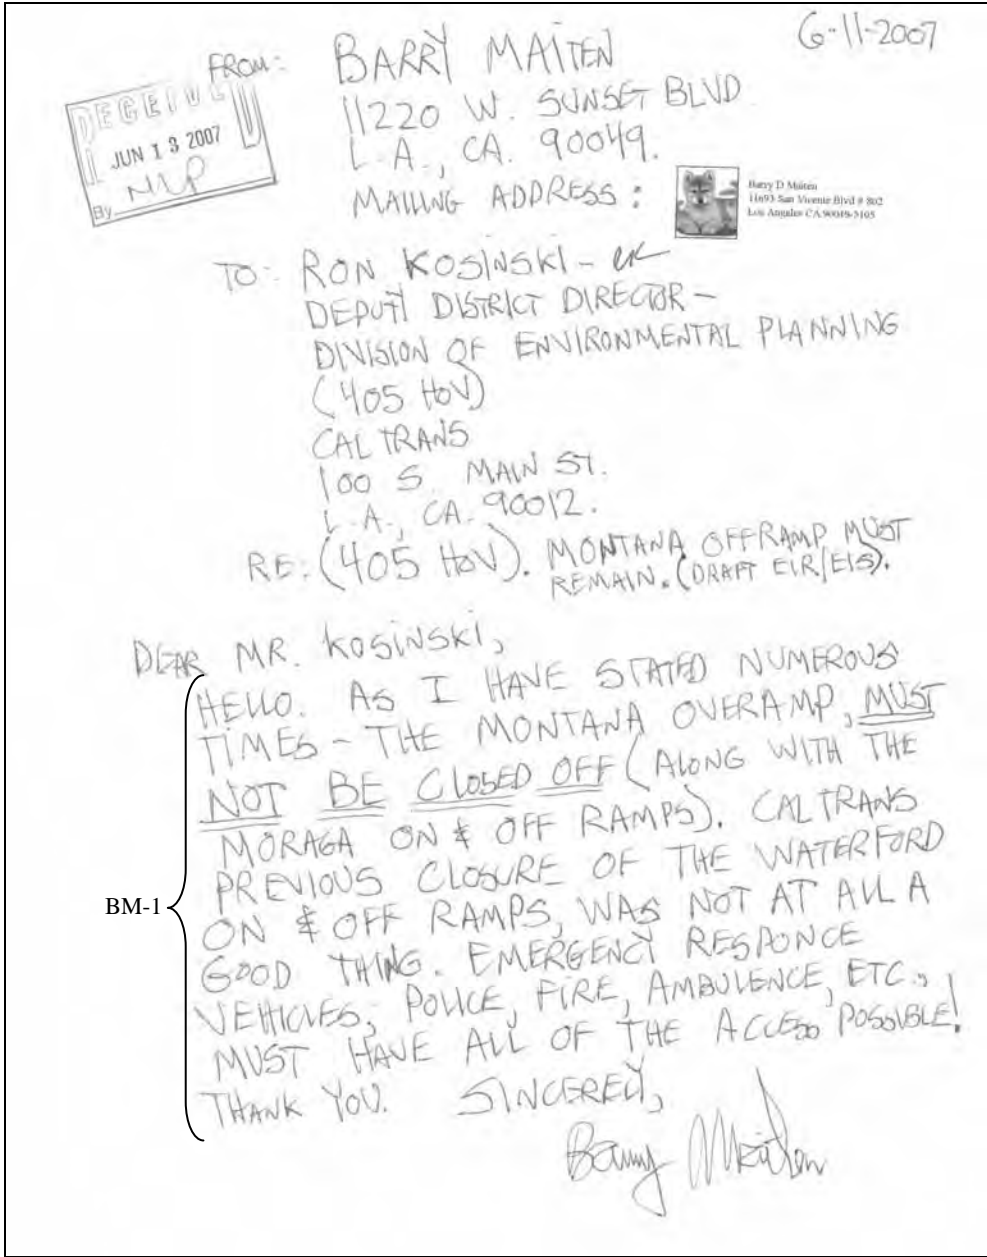 6-11-2007
FROM: BARRY MAITEN
11220 W. SUNSET BLVD
L.A., CA. 90049.
MAILING ADDRESS:
Barry D Maiten
11693 San Vicente Blvd # 802
Los Angeles CA 90049-5105
RECEIVED
JUN 13 2007
By
TO: RON KOSINSKI -
DEPUTY DISTRICT DIRECTOR -
DIVISION OF ENVIRONMENTAL PLANNING
(405 HOV)
CAL TRANS
100 S. MAIN ST.
L.A., CA. 90012.
RE: (405 HOV). MONTANA OFFRAMP MUST
REMAIN. (DRAFT EIR/EIS).
DEAR MR. KOSINSKI,
HELLO. AS I HAVE STATED NUMEROUS
TIMES - THE MONTANA OVERAMP, MUST
NOT BE CLOSED OFF (ALONG WITH THE
MORAGA ON & OFF RAMPS). CAL TRANS
PREVIOUS CLOSURE OF THE WATERFORD
BM-1
ON & OFF RAMPS, WAS NOT AT ALL A
GOOD THING. EMERGENCY RESPONCE
VEHICLES, POLICE, FIRE, AMBULENCE, ETC.,
MUST HAVE ALL OF THE ACCESS POSSIBLE!
THANK YOU. SINCERELY,
Barry Maiten